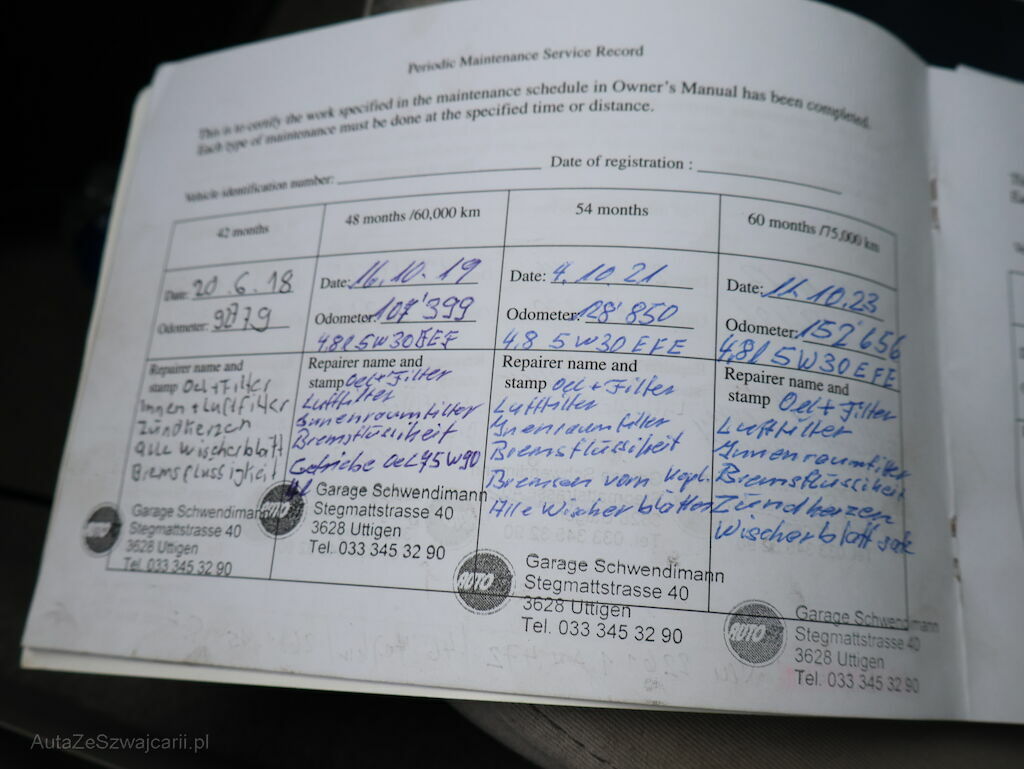 Periodic Maintenance Service Record
This is to certify the work specified in the maintenance schedule in Owner's Manual has been completed.
Each type of maintenance must be done at the specified time or distance.
Vehicle identification number:
Date of registration :
42 months
Date: 20.6.18
Odometer:
Repairer name and
stamp Oel + Filter
Innen + Luftfilter
Zündkerzen
alle Wischerblatt
Bremsflüssigkeit
Garage Schwendimann
Stegmattstrasse 40
3628 Uttigen
Tel. 033 345 32 90
48 months /60,000 km
Date: 16.10.19
Odometer: 107'399
4.8l 5W30 EFE
Repairer name and
stamp Oel + Filter
Luftfilter
Innenraumfilter
Bremsflüssiheit
Getriebe Oel 75W90
AUTO
Garage Schwendimann
Stegmattstrasse 40
3628 Uttigen
Tel. 033 345 32 90
54 months
Date: 4.10.21
Odometer: 128'850
4.8 5W30 EFE
Repairer name and
stamp Oel + Filter
Luftfilter
Innenraumfilter
Bremsflüssiheit
Bremsen vorn
Alle Wischerblätter
AUTO
Garage Schwendimann
Stegmattstrasse 40
3628 Uttigen
Tel. 033 345 32 90
60 months /75,000 km
Date: 11.10.23
Odometer: 152'656
4,8l 5W30 EFE
Repairer name and
stamp Oel + Filter
Luftfilter
Innenraumfilter
Bremsflüssiheit
Zündkerzen
Wischerblatt
AUTO
Garage Schwendimann
Stegmattstrasse 40
3628 Uttigen
Tel. 033 345 32 90
AutaZeSzwajcarii.pl